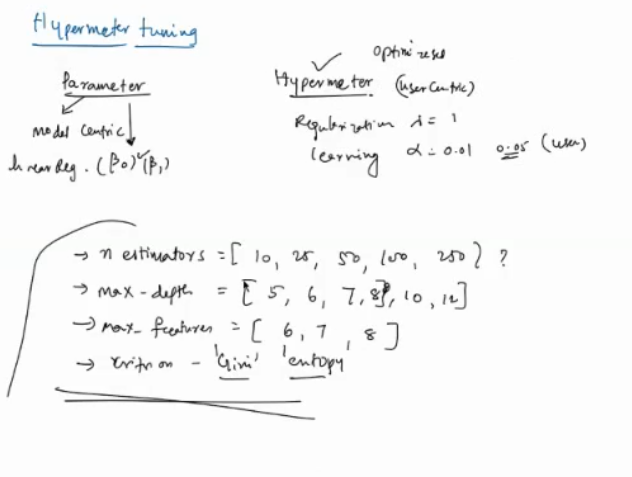 Hypermeter tuning
Parameter
Model Centric
linear Reg. (β0) (β1)
optimized
Hypermeter (user Centric)
Regularization λ = 1
learning α = 0.01 0.05 (user)
→ n estimators = [ 10, 25, 50, 100, 250 ] ?
→ max-depth = [ 5, 6, 7, 8], 10, 12]
→ max_features = [ 6, 7, 8 ]
→ critrion - 'Gini' 'entopy'